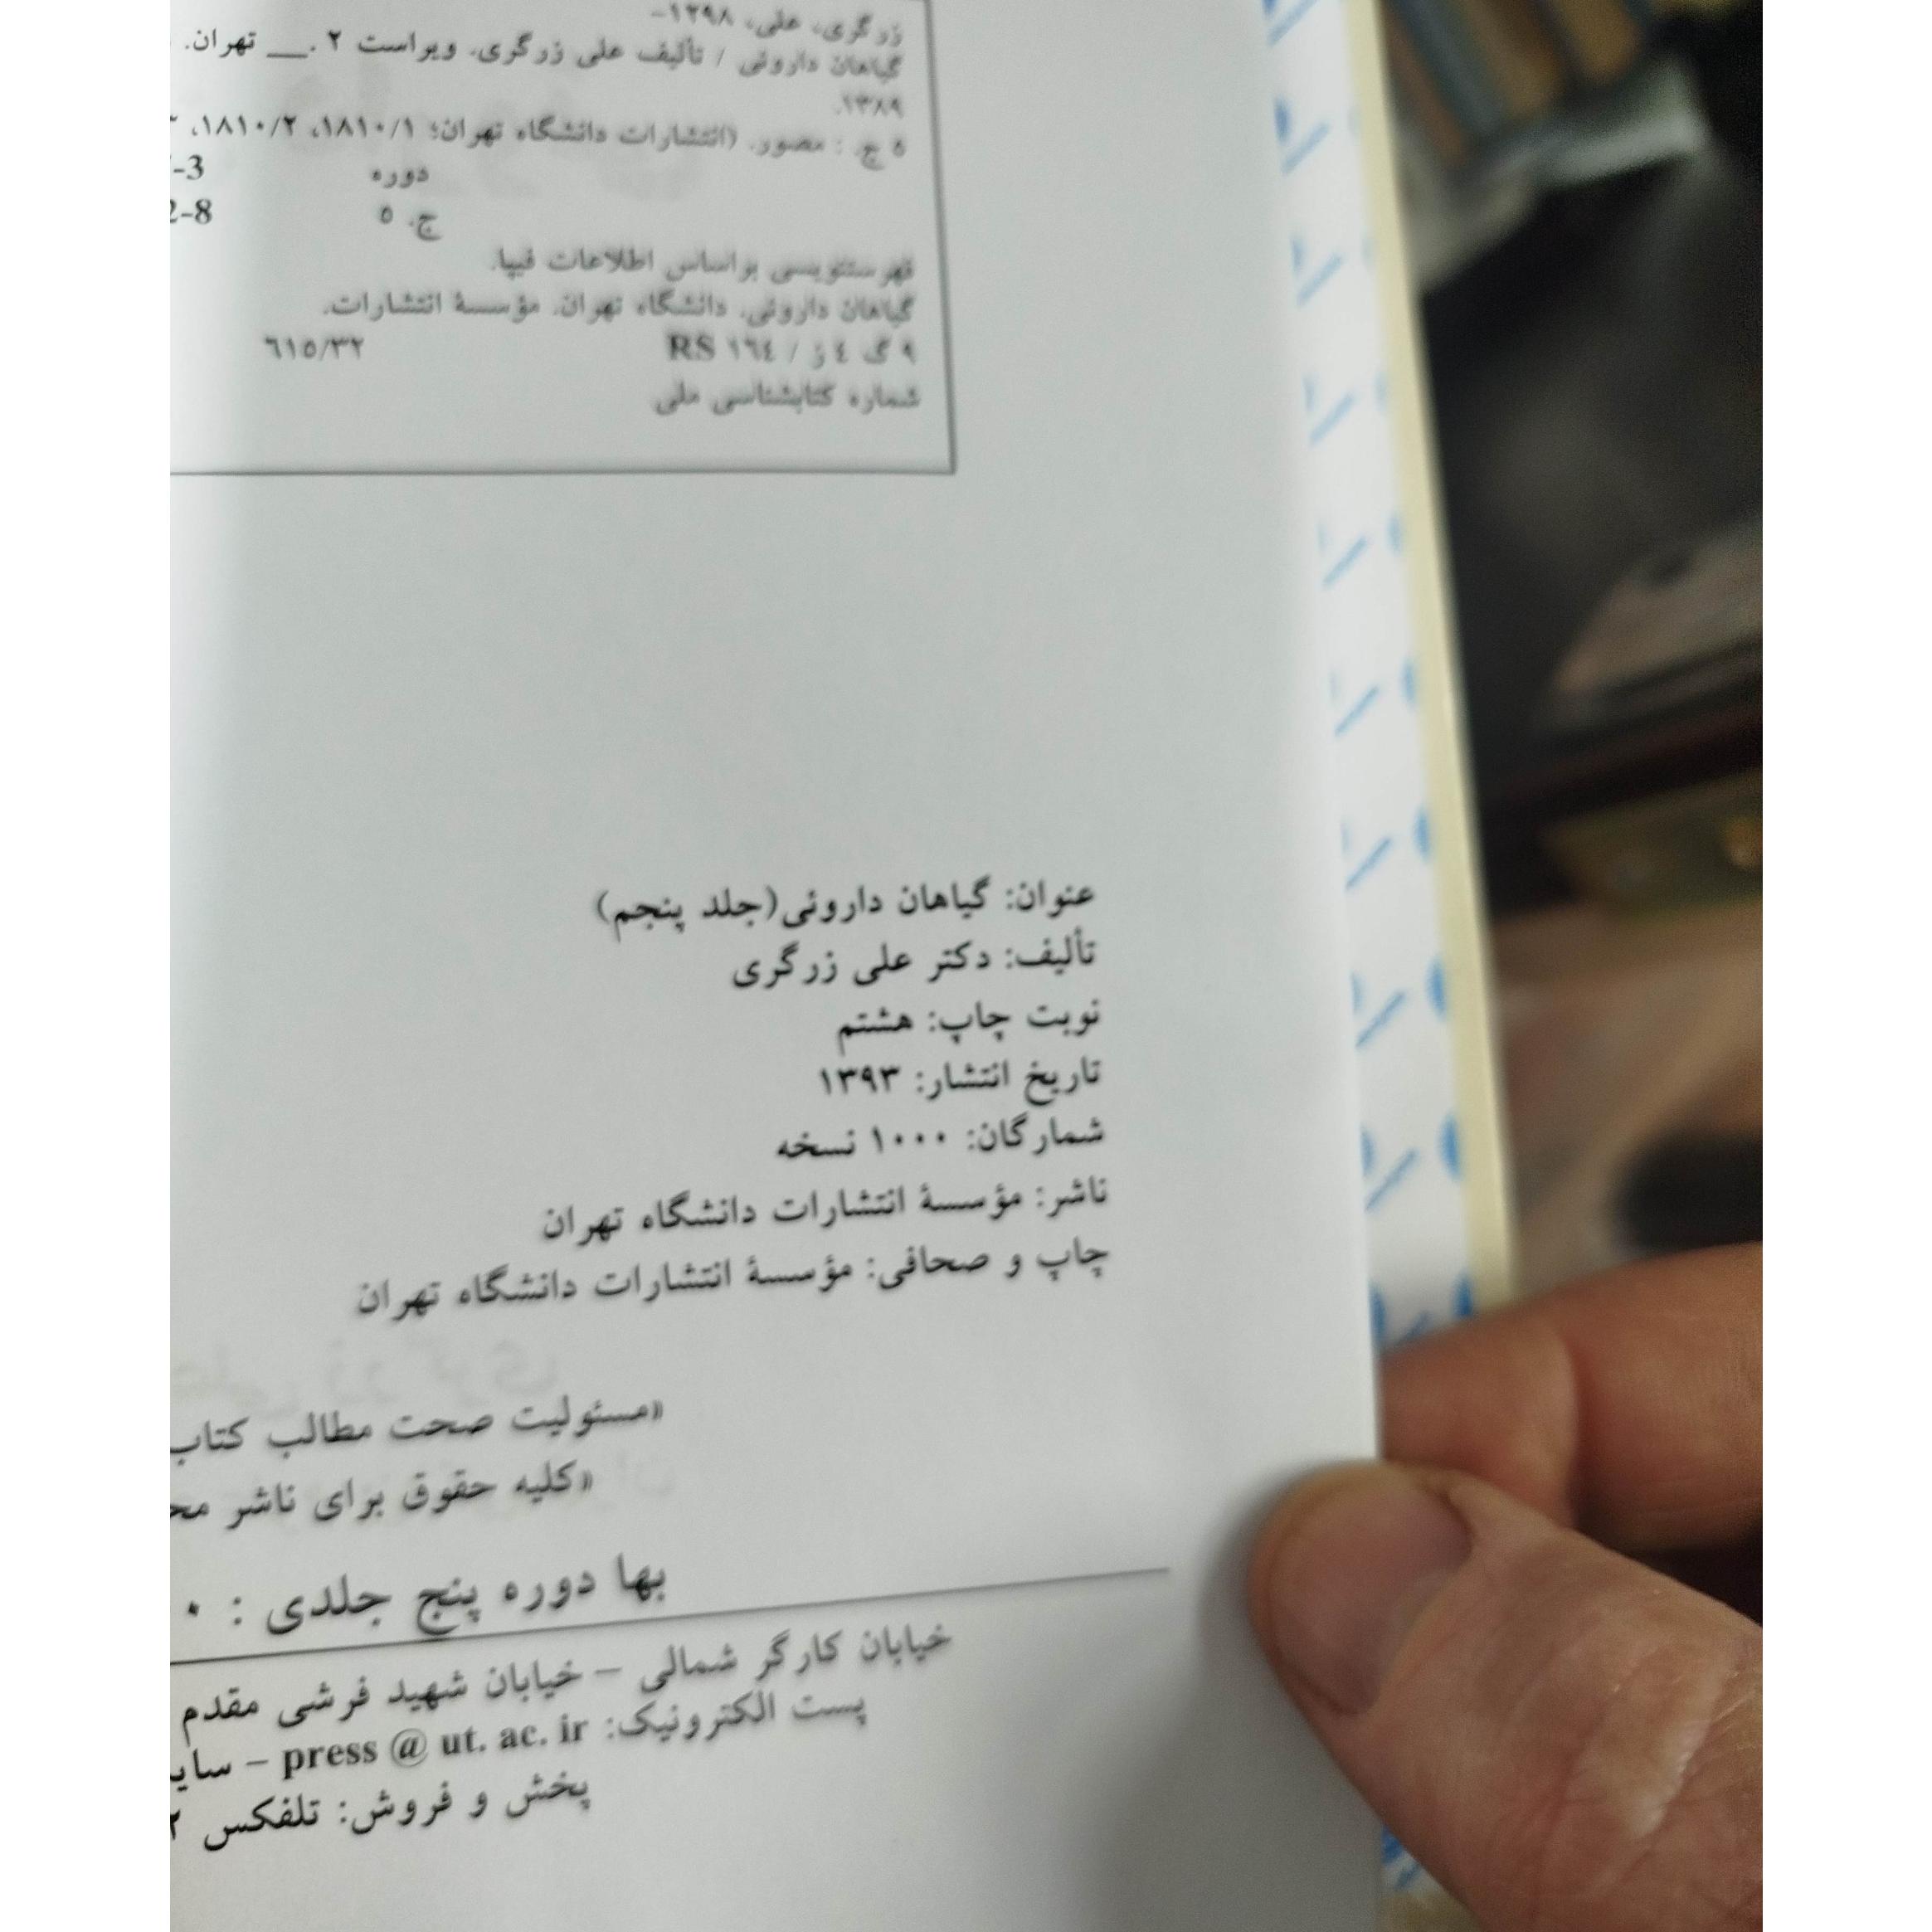 زرگری، علی، ۱۲۹۸-
گیاهان داروئی / تألیف علی زرگری. ویراست ۲.__ تهران.
۱۳۸۹.
٥ ج. : مصور. (انتشارات دانشگاه تهران؛ ۱۸۱۰/۱، ۱۸۱۰/۲،
دوره -3
ج. ٥ 2-8
فهرستنویسی براساس اطلاعات فیپا.
گیاهان داروئی. دانشگاه تهران. مؤسسۀ انتشارات.
۹ گ ٤ ز / ١٦٤ RS ٦١٥/٣٢
شماره کتابشناسی ملی
عنوان: گیاهان داروئی(جلد پنجم)
تألیف: دکتر علی زرگری
نوبت چاپ: هشتم
تاریخ انتشار: ۱۳۹۳
شمارگان: ۱۰۰۰ نسخه
ناشر: مؤسسۀ انتشارات دانشگاه تهران
چاپ و صحافی: مؤسسۀ انتشارات دانشگاه تهران
«مسئولیت صحت مطالب کتاب
«کلیه حقوق برای ناشر مح
بها دوره پنج جلدی : ۰
خیابان کارگر شمالی – خیابان شهید فرشی مقدم
پست الکترونیک: press @ ut. ac. ir – سای
پخش و فروش: تلفکس ۲